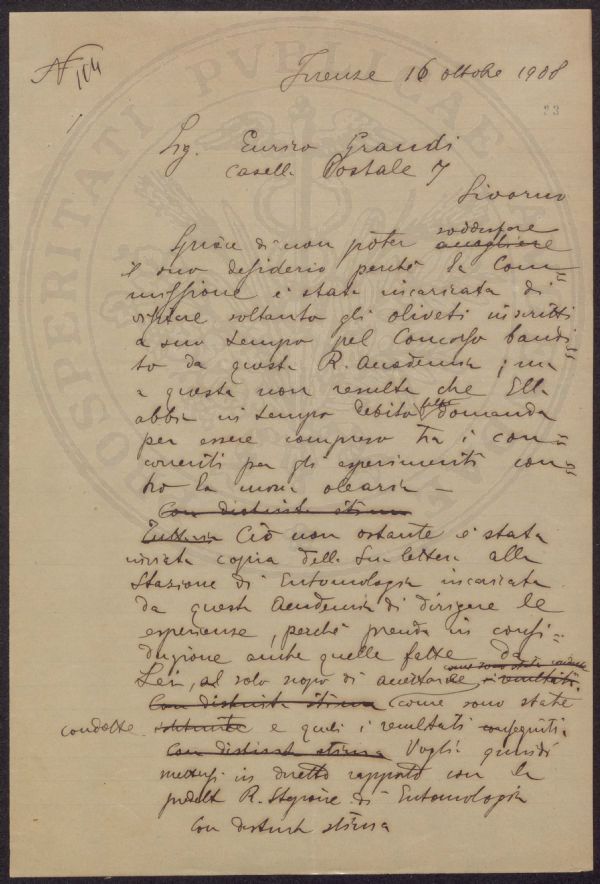 N 104
Firenze 16 ottobre 1908
23
Sig. Enrico Grandi
Casella Postale 7
Livorno
di non poter soddisfare accogliere
il suo desiderio perché la Com=
missione è stata incaricata di
visitare soltanto gli oliveti inscritti
a suo tempo pel Concorso bandi=
to da questa R. Accademia; ma
a questa non resulta che Ella
abbia in tempo debito fatto domanda
per essere compreso tra i con=
correnti per gli esperimenti con=
tro la mosca olearia —
Con distinta stima
Tuttavia Ciò non ostante è stata
inviata copia della Sua lettera alla
Stazione di Entomologia incaricata
da questa Accademia di dirigere le
esperienze, perché prenda in consi=
derazione anche quelle fatte da
Lei, al solo scopo di accertare come sono state condotte i resultati
Con distinta stima come sono state
condotte istituite e quali i resultati conseguiti.
Con distinta stima Voglia quindi
mettersi in diretto rapporto con la
predetta R. Stazione di Entomologia
Con distinta stima
PROSPERITATI PVBLICAE